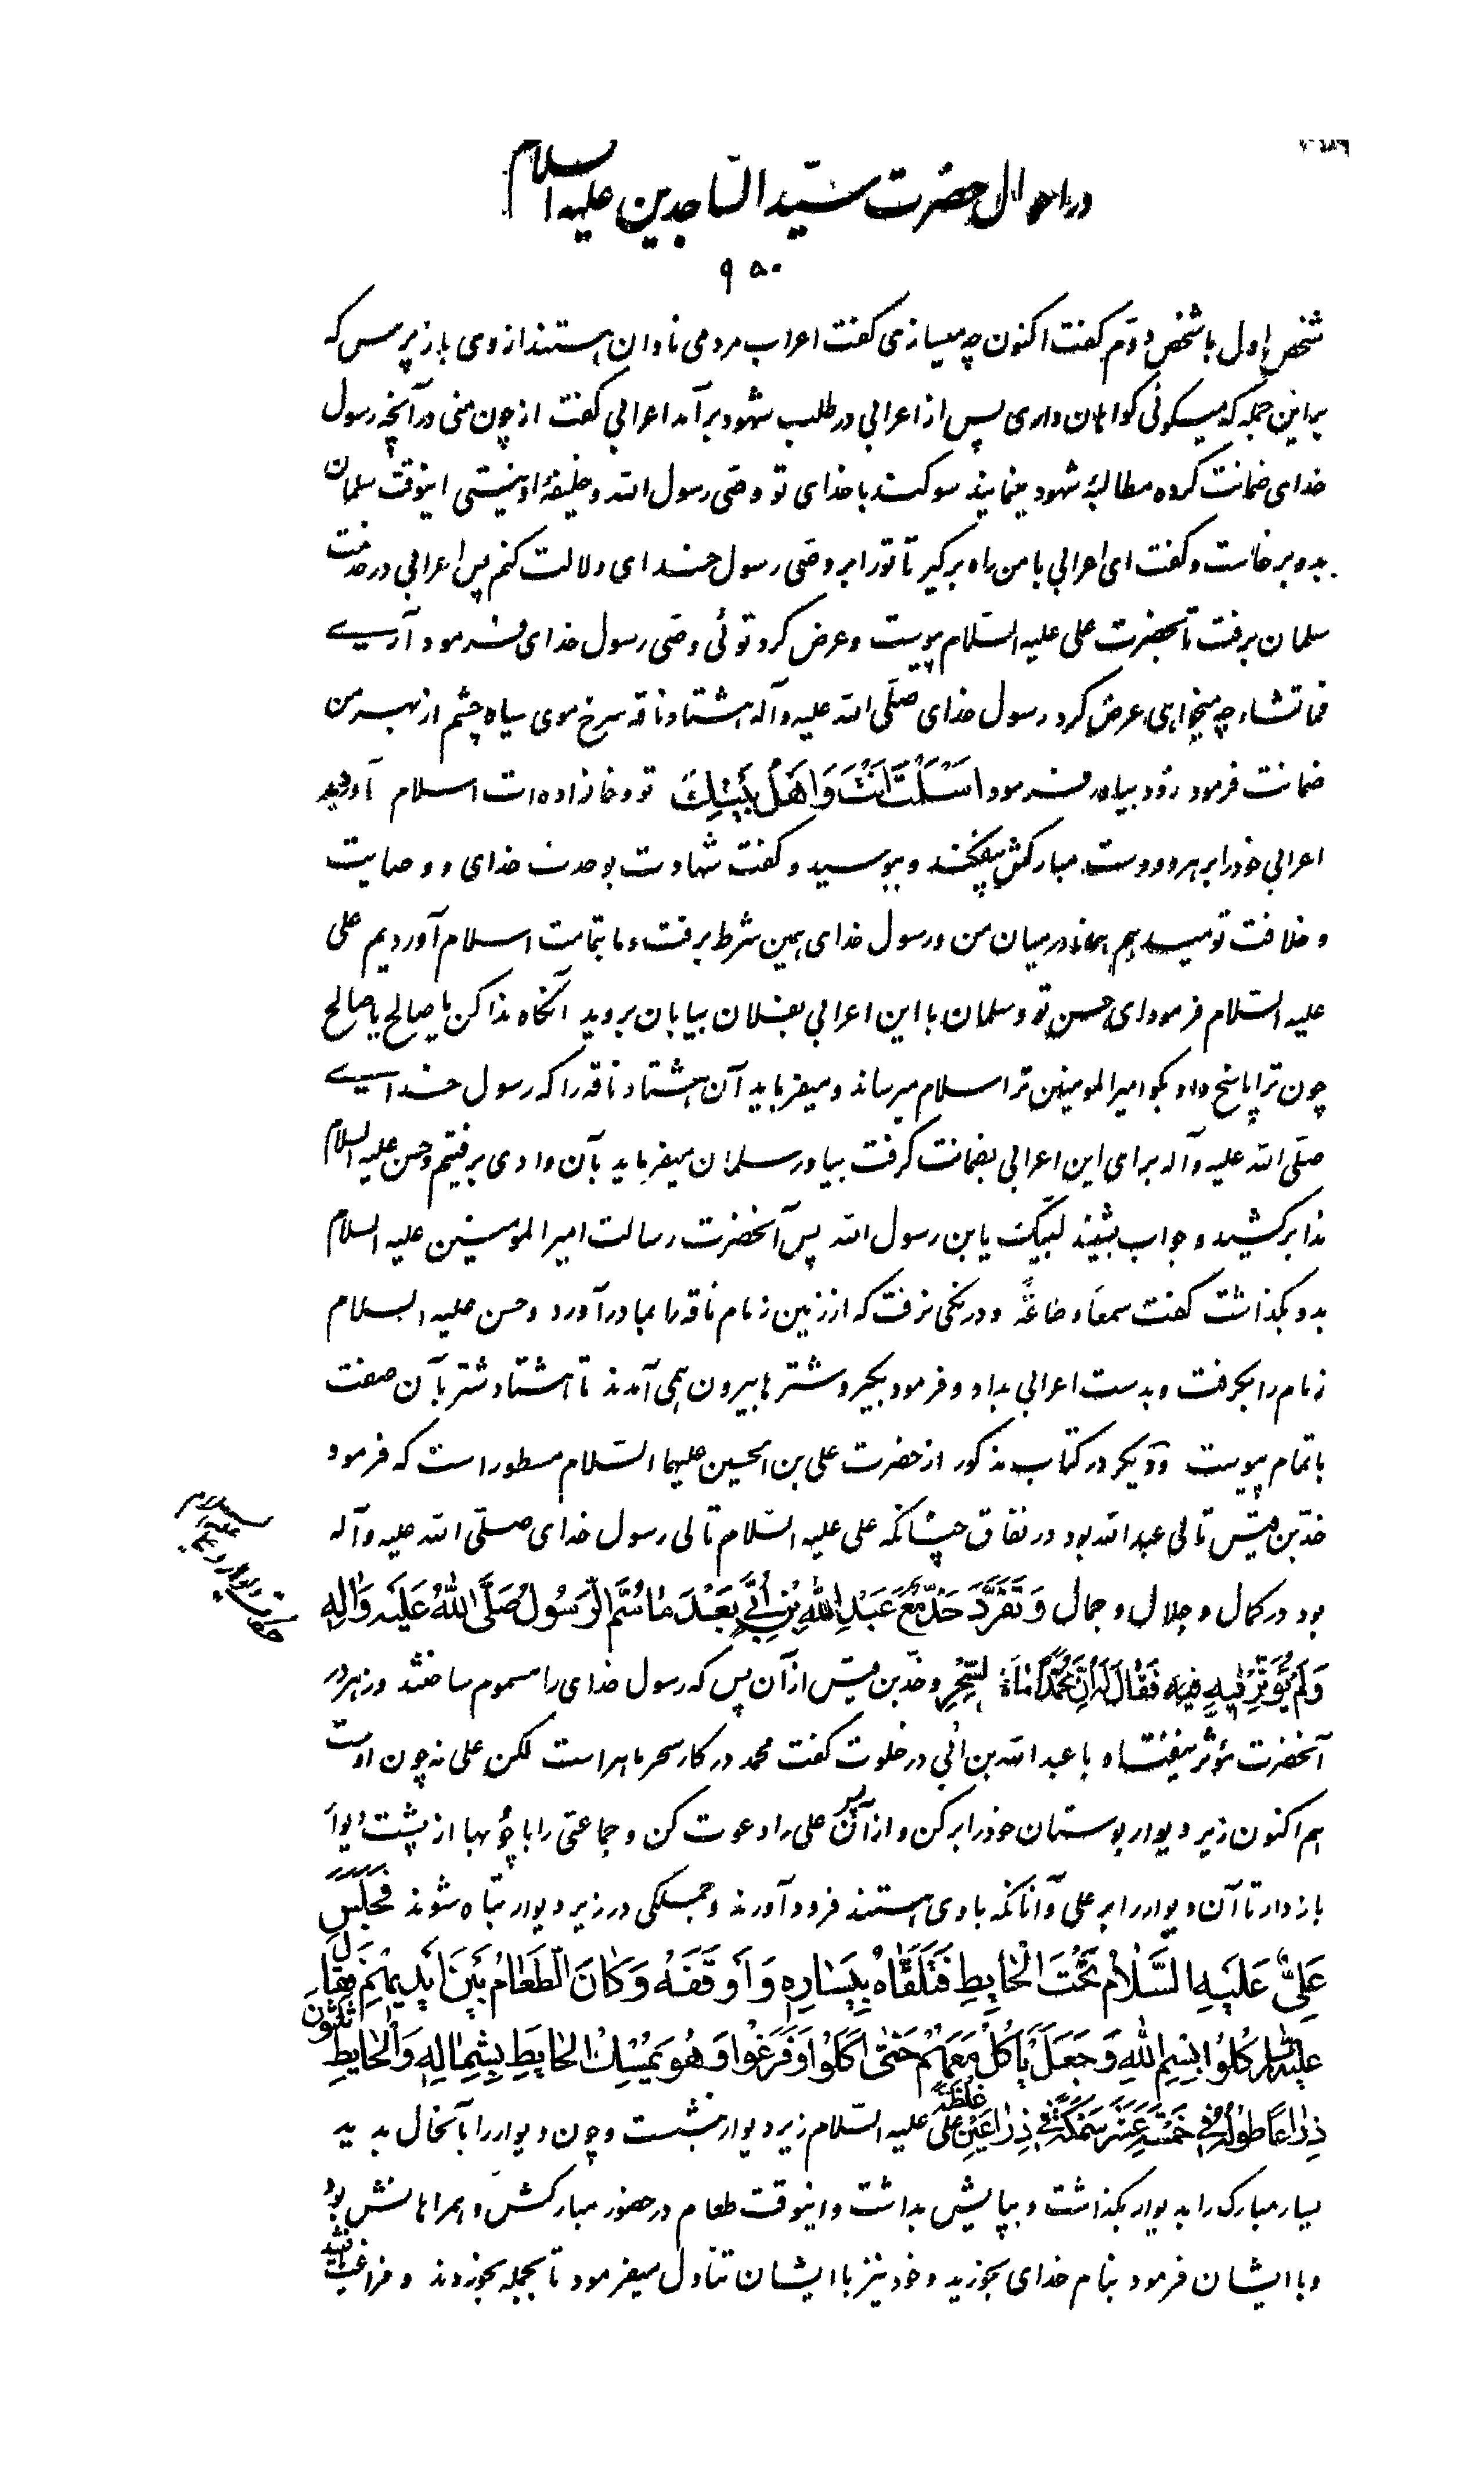 در احوال حضرت سیّد السّاجدین علیه السلام
۹۵۰
شخص اول با شخص دوّم گفت اکنون چه میسازی گفت اعراب مردمی نادان هستند از وی باز پرس که
براین جمله که میگوئی گواهان داری پس از اعرابی در طلب شهود برآمد اعرابی گفت از چون منی در آنچه رسول
خدای ضمانت کرده مطالبهٔ شهود مینمایند سوگند با خدای تو وصّی رسول الله و خلیفهٔ او نیستی اینوقت سلمان
بدو برخاست و گفت ای اعرابی با من راه برگیر تا تو را بر وصّی رسول خدای دلالت کنم پس اعرابی در خدمت
سلمان برفت تا بحضرت علی علیه السّلام پیوست و عرض کرد توئی وصّی رسول خدای فرمود آری
فما تشاء چه میخواهی عرض کرد رسول خدای صلّی الله علیه و آله هشتاد ناقه سرخ موی سیاه چشم از بهر من
ضمانت فرمود زود بیاور فرمود اَسْلَمْتَ اَنْتَ وَ اَهْلُ بَیْتِكَ تو و خانواده‌ات اسلام آوردید
اعرابی خود را بر هر دو دست مبارکش بیفکند و ببوسید و گفت شهادت بوحدت خدای و وصایت
و خلافت تو میدهم همانا در میان من و رسول خدای همین شرط برفت و ما بتمامت اسلام آوردیم علی
علیه السّلام فرمود ای حسن تو و سلمان با این اعرابی بفلان بیابان بروید آنگاه ندا کن یا صالح یا صالح
چون ترا پاسخ داد بگو امیر المومنین ترا سلام میرساند و میفرماید آن هشتاد ناقه را که رسول خدای
صلّی الله علیه و آله برای این اعرابی بضمانت گرفت بیاور سلمان میفرماید بآن وادی برفتیم و حسن علیه السلام
ندا برکشید و جواب بشنید لبّیک یابن رسول الله پس آنحضرت رسالت امیر المومنین علیه السلام
بدو بگذاشت گفت سمعاً و طاعةً و درنگی نرفت که از زمین زمام ناقه را بما درآورد و حسن علیه السلام
زمام را بگرفت و بدست اعرابی بداد و فرمود بگیر و شترها بیرون همی آمدند تا هشتاد شتر بآن صفت
باتمام پیوست و دیگر در کتاب مذکور از حضرت علی بن الحسین علیهما السّلام مسطور است که فرمود
جدّ بن قیس تالی عبد الله بود در نفاق چنانکه علی علیه السّلام تالی رسول خدای صلّی الله علیه و آله
بود در کمال و جلال و جمال وَ تَفَرَّدَ جَدٌّ مَعَ عَبْدِ اللهِ بْنِ اُبَیٍّ بَعْدَ مَا سُمَّ الرَّسُولُ صَلَّی اللهُ عَلَیْهِ وَ اٰلِهِ
وَ لَمْ یُؤَثِّرْ فِیهِ فَقَالَ لَهُ اِنَّ مُحَمَّداً مَاهِرٌ بِالسِّحْرِ و جدّ بن قیس از آن پس که رسول خدای را مسموم ساختند و زهر در
آنحضرت مؤثر نیفتاد با عبد الله بن ابی در خلوت گفت محمد در کار سحر ماهر است لکن علی نه چون اوست
هم اکنون زیر دیوار بوستان خود را بر کن و از آن پس علی را دعوت کن و جماعتی را با چوبها از پشت دیوار
بازدار تا آن دیوار را بر علی و آنانکه با وی هستند فرود آورند و جملگی در زیر دیوار تباه شوند فَجَلَسَ
عَلِیٌّ عَلَیْهِ السَّلَامُ تَحْتَ الْحَایِطِ فَتَلَقَّاهُ بِیَسَارِهِ وَ اَوْقَفَهُ وَ کَانَ الطَّعَامُ بَیْنَ اَیْدِیهِمْ فَقَالَ
عَلَیْهِ السَّلَامُ کُلُوا بِسْمِ اللهِ وَ جَعَلَ یَأْکُلُ مَعَهُمْ حَتّٰی اَکَلُوا وَ فَرَغُوا وَ هُوَ یُمْسِكُ الْحَایِطَ بِشِمَالِهِ وَ الْحَایِطُ ثَلٰثُونَ
ذِرَاعاً طُولُهُ فِی خَمْسَةَ عَشَرَ سَمْكُهُ فِی ذِرَاعَیْنِ غِلَظُهُ علی علیه السّلام زیر دیوار بنشست و چون دیوار را بآنحال بدید
یسار مبارک را بدیوار بگذاشت و بپایش بداشت و اینوقت طعام در حضور مبارکش و همراهانش بود
و با ایشان فرمود بنام خدای بخورید و خود نیز با ایشان تناول میفرمود تا بجمله بخوردند و فراغت یافتند